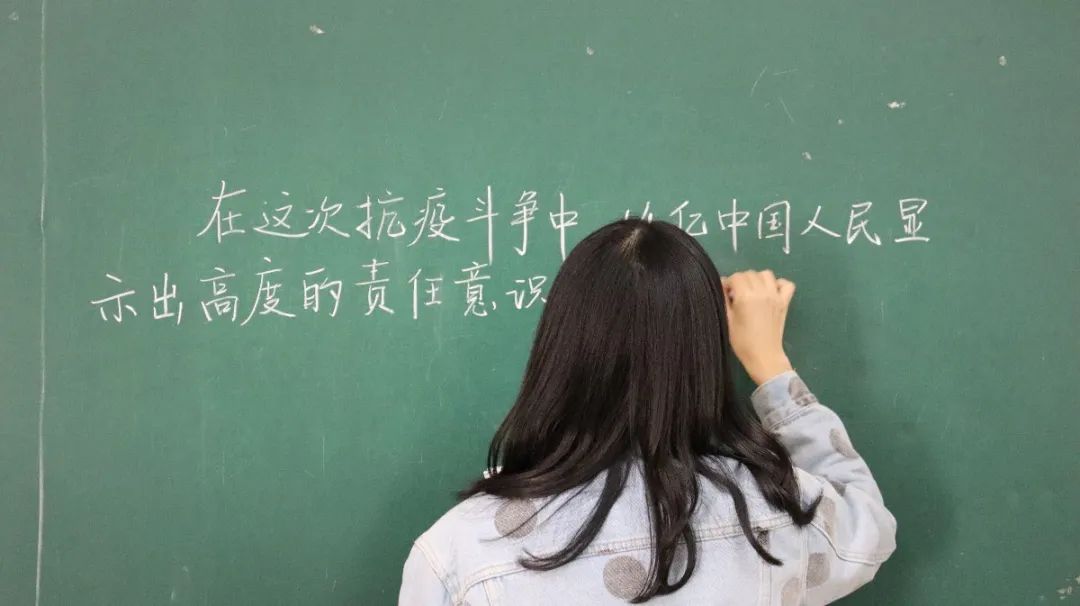 在这次抗疫斗争中 14亿中国人民显
示出高度的责任意识